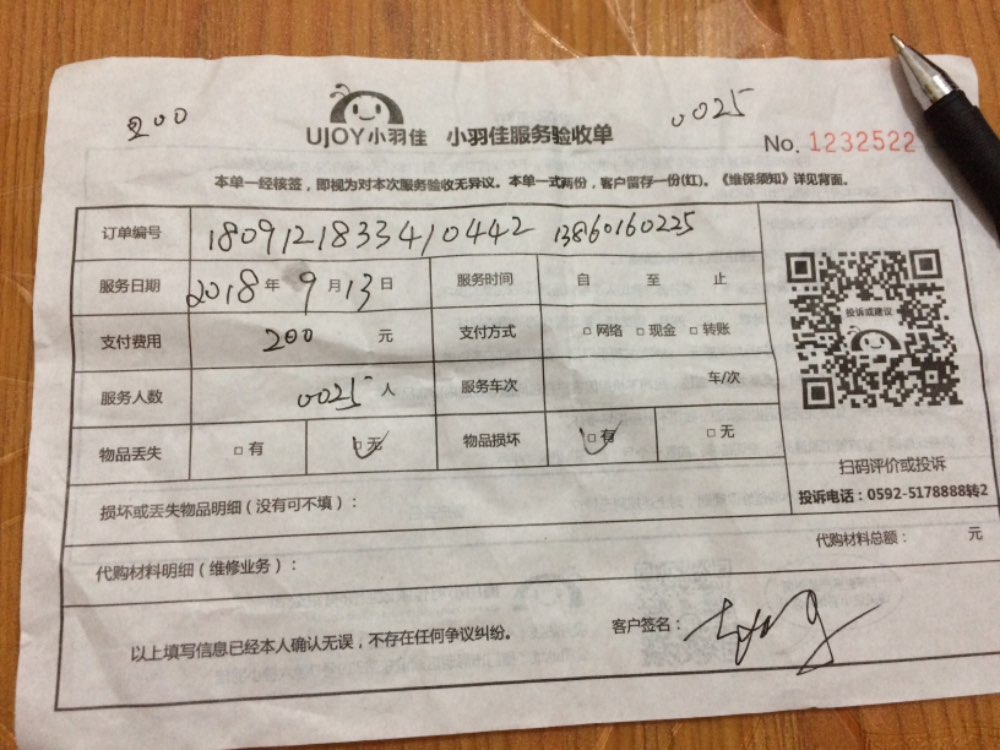 200
0025
UJOY小羽佳 小羽佳服务验收单
No. 1232522
本单一经核签，即视为对本次服务验收无异议。本单一式两份，客户留存一份(红)。《维保须知》详见背面。
订单编号 1809121833410442 13860160225
服务日期 2018年 9月13日 服务时间 自 至 止
支付费用 200 元 支付方式 □网络 □现金 □转账
服务人数 0025 人 服务车次 车/次
物品丢失 □有 □无 物品损坏 □有 □无
投诉或建议
扫码评价或投诉
投诉电话：0592-5178888转2
损坏或丢失物品明细（没有可不填）：
代购材料明细（维修业务）： 代购材料总额： 元
以上填写信息已经本人确认无误，不存在任何争议纠纷。 客户签名：